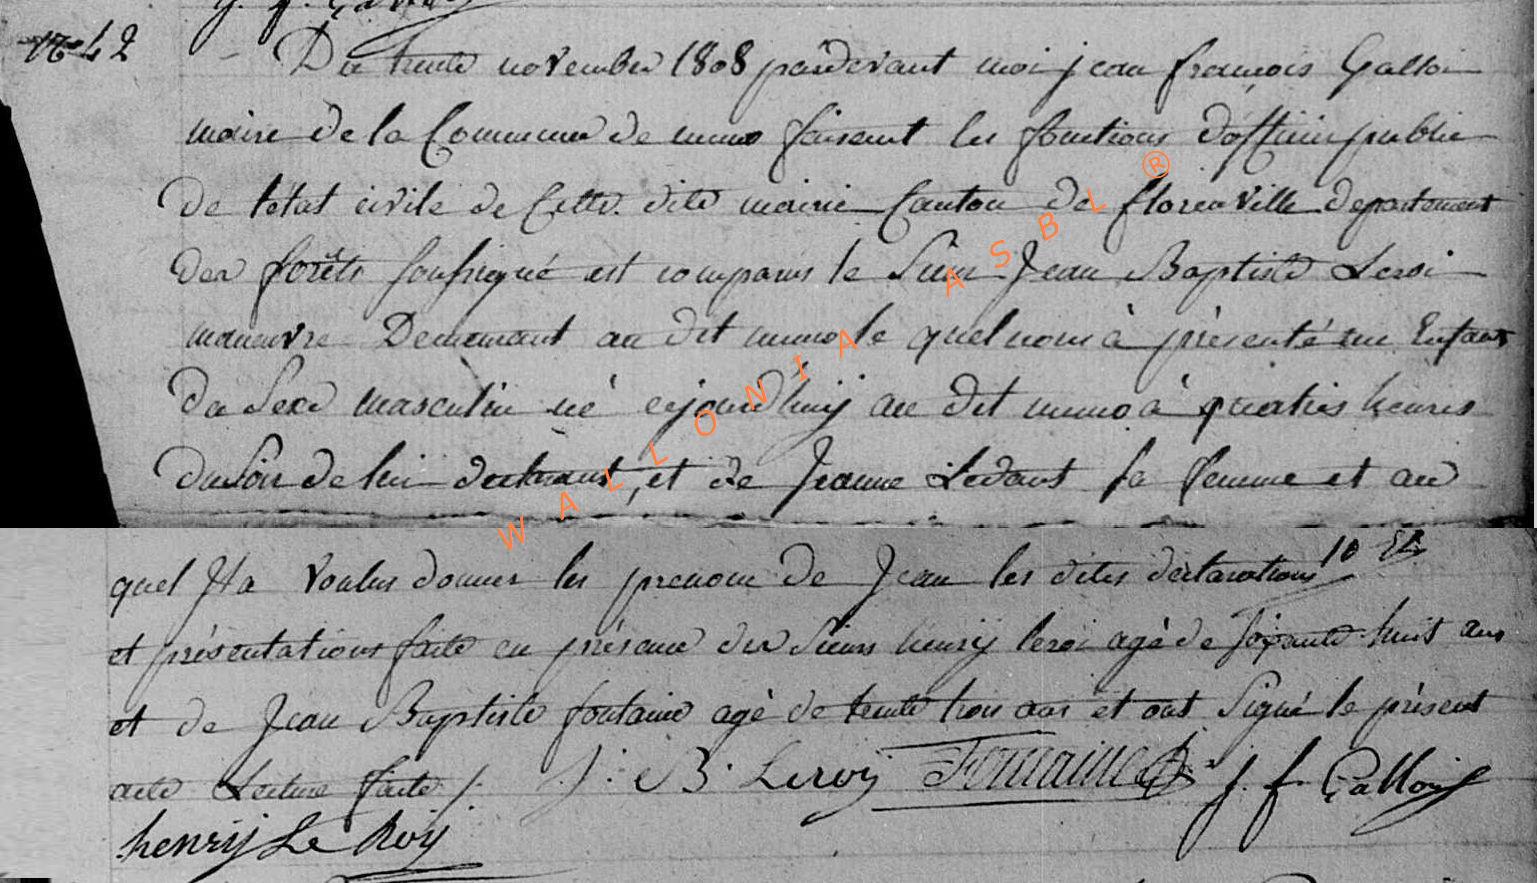 42
Du trente november 1808 pardevant moi jean francois Galloi
maire de la Commune de muno faisant les fonctions d'officie public
de l'état civile de Cette dite mairie Canton de florenville departement
des forêts soussigné est comparus le Sieur Jean Baptiste Leroi
maneuvre Demeurant au dit muno le quel nous à présenté un Enfant
du Sexe masculin né cejourd'huij au dit muno à quatres heures
du Soir de lui declarant, et de Jeanne Ledant sa femme et au
quel Il a voulus donner les prenom de Jean les dites declarations
et présentations faite en présence des Sieurs henrij leroi agé de soixante huit ans
et de Jean Baptiste fontaine agé de trente trois ans et ont Signé le présent
acte Lecture faite /.
J. B. Leroy Fontaine J. f. Gallois
henrij Le Roij
WALLONIA ASBL ®